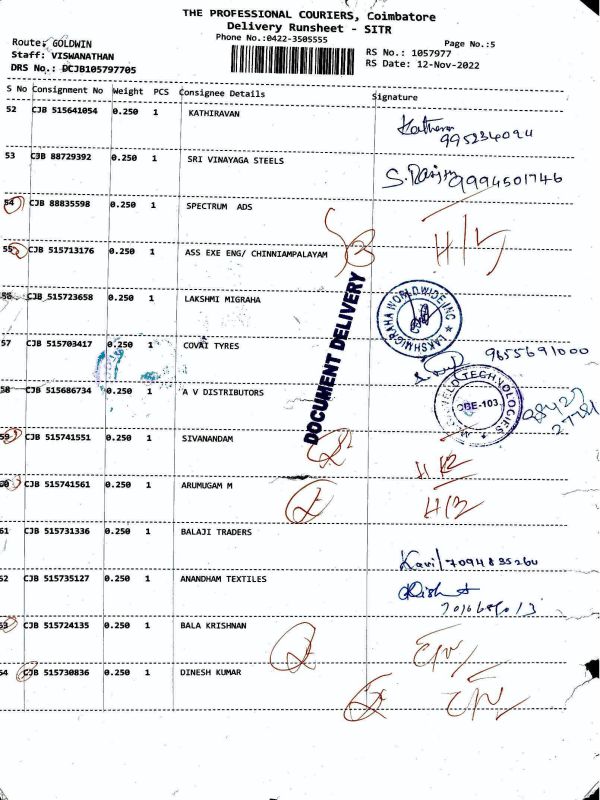 THE PROFESSIONAL COURIERS, Coimbatore
Delivery Runsheet - SITR
Phone No.:0422-3505555
Page No.:5
Route: GOLDWIN
Staff: VISWANATHAN
RS No.: 1057977
DRS No.: DCJB105797705
RS Date: 12-Nov-2022
S No Consignment No Weight PCS Consignee Details Signature
52 CJB 515641054 0.250 1 KATHIRAVAN
995234094
53 CJB 88729392 0.250 1 SRI VINAYAGA STEELS
9994501746
54 CJB 88835598 0.250 1 SPECTRUM ADS
55 CJB 515713176 0.250 1 ASS EXE ENG/ CHINNIAMPALAYAM
DOCUMENT DELIVERY
56 CJB 515723658 0.250 1 LAKSHMI MIGRAHA
57 CJB 515703417 0.250 1 COVAI TYRES
9655691000
58 CJB 515686734 0.250 1 A V DISTRIBUTORS
CBE-103.
59 CJB 515741551 0.250 1 SIVANANDAM
60 CJB 515741561 0.250 1 ARUMUGAM M
61 CJB 515731336 0.250 1 BALAJI TRADERS
Kavi/7094835260
62 CJB 515735127 0.250 1 ANANDHAM TEXTILES
63 CJB 515724135 0.250 1 BALA KRISHNAN
64 CJB 515730836 0.250 1 DINESH KUMAR